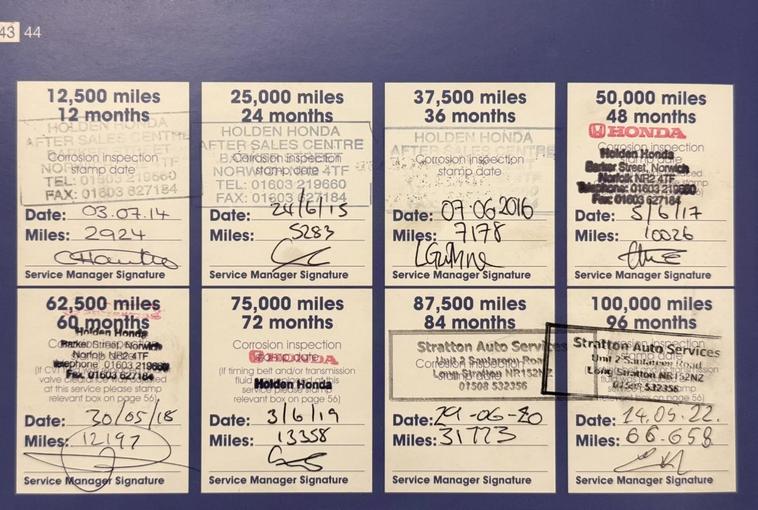 43 44
12,500 miles
12 months
HOLDEN HONDA
AFTER SALES CENTRE
Corrosion inspection
stamp date
TEL: 01603 219660
FAX: 01603 627184
Date: 03.07.14
Miles: 2924
Service Manager Signature
25,000 miles
24 months
HOLDEN HONDA
AFTER SALES CENTRE
Corrosion inspection
stamp date
NORWICH 4TF
TEL: 01603 219660
FAX: 01603 627184
Date: 24/6/15
Miles: 5283
Service Manager Signature
37,500 miles
36 months
HOLDEN HONDA
AFTER SALES CENTRE
Corrosion inspection
stamp date
Date: 07 06 2016
Miles: 7178
Service Manager Signature
50,000 miles
48 months
HONDA
Holden Honda
Barker Street, Norwich
Norfolk NR2 4TF
Telephone: 01603 219660
Fax: 01603 627184
Date: 5/6/17
Miles: 10026
Service Manager Signature
62,500 miles
60 months
Holden Honda
Barker Street, Norwich
Norfolk NR2 4TF
Telephone: 01603 219660
Fax: 01603 627184
at this service please stamp
relevant box on page 56)
Date: 30/05/18
Miles: 12197
Service Manager Signature
75,000 miles
72 months
Corrosion inspection
stamp date
HONDA
(if timing belt and/or transmission
Holden Honda
service please stamp
relevant box on page 56)
Date: 3/6/19
Miles: 13358
Service Manager Signature
87,500 miles
84 months
Stratton Auto Services
Unit 2 Santaroen Road
Long Stratton NR152NZ
01508 532356
Date: 29-06-20
Miles: 31773
Service Manager Signature
100,000 miles
96 months
Stratton Auto Services
Unit 2 Santaroen Road
Long Stratton NR152NZ
01508 532356
relevant box on page 56)
Date: 14.05.22.
Miles: 66.658
Service Manager Signature